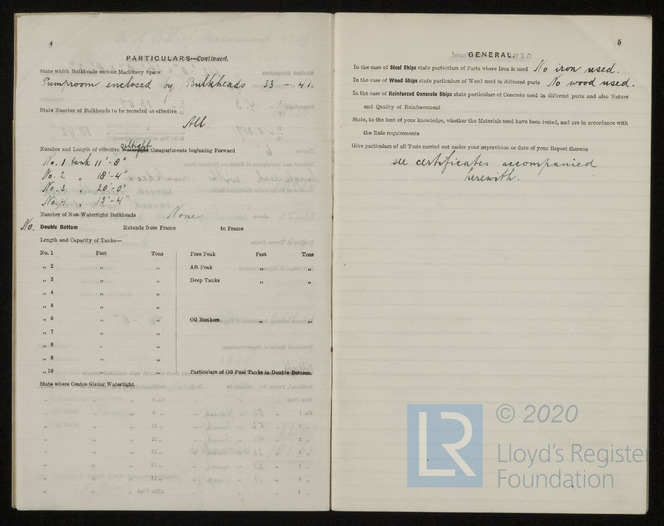 4
PARTICULARS—Continued.
State which Bulkheads enclose Machinery Space
Pumproom enclosed by Bulkheads 33 - 41.
State Number of Bulkheads to be recorded as effective
All
Number and Length of effective Watertight oiltight Compartments beginning Forward
No. 1 tank 11'-8"
No. 2 " 18'-4"
No. 3 " 20'-0"
No. 4 " 13'-4"
Number of Non-Watertight Bulkheads None
No. Double Bottom Extends from Frame to Frame
Length and Capacity of Tanks—
No. 1 Feet Tons Fore Peak Feet Tons
„ 2 „ „ Aft Peak „ „
„ 3 „ „ Deep Tanks „ „
„ 4 „ „
„ 5 „ „
„ 6 „ „ Oil Bunkers „ „
„ 7 „ „
„ 8 „ „
„ 9 „ „
„ 10 „ „ Particulars of Oil Fuel Tanks in Double Bottom.
State where Centre Girder Watertight
5
GENERAL.
In the case of Steel Ships state particulars of Parts where Iron is used No iron used.
In the case of Wood Ships state particulars of Wood used in different parts No wood used.
In the case of Reinforced Concrete Ships state particulars of Concrete used in different parts and also Nature
and Quality of Reinforcement
State, to the best of your knowledge, whether the Materials used have been tested, and are in accordance with
the Rule requirements
Give particulars of all Tests carried out under your supervision or date of your Report thereon
see certificates accompanied
herewith.
LR
© 2020
Lloyd's Register
Foundation